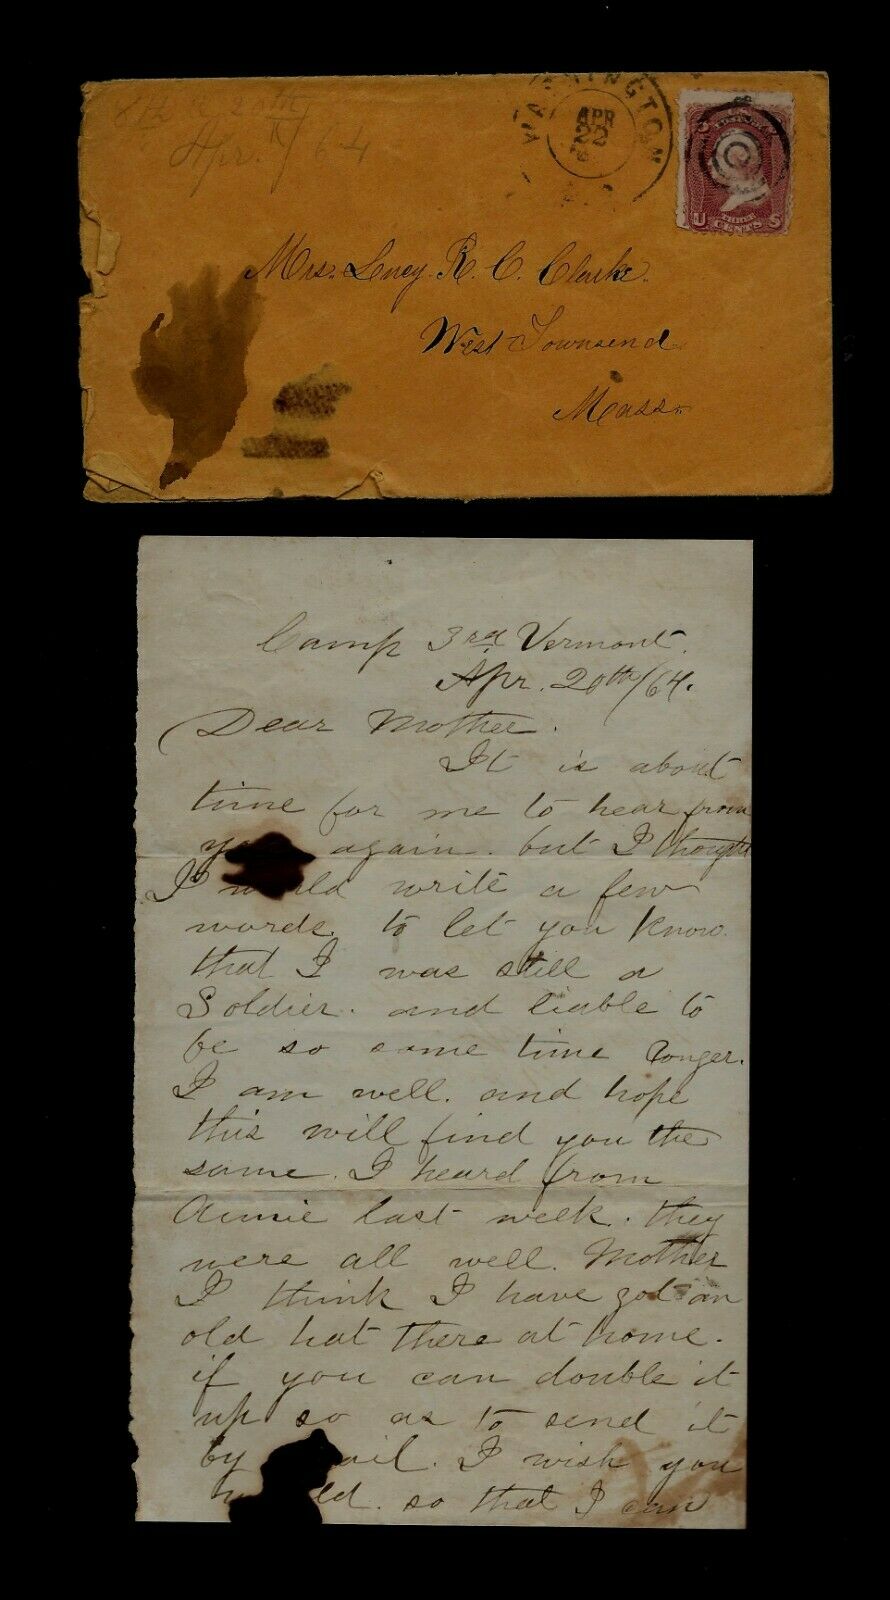 Apr. /64
WASHINGTON
APR
22
3 3
U CENTS S
Mrs. Lucy R. C. Clarke.
West Townsend
Mass.
Camp 3rd Vermont.
Apr. 20th/64.
Dear Mother.
It is about
time for me to hear from
again. but I thought
I write a few
words. to let you know.
that I was still a
Soldier. and liable to
be so some time longer.
I am well. and hope
this will find you the
same. I heard from
Annie last week. they
were all well. Mother
I think I have got an
old hat there at home.
if you can double it
up so as to send it
by ail. I wish you
ld. so that I can